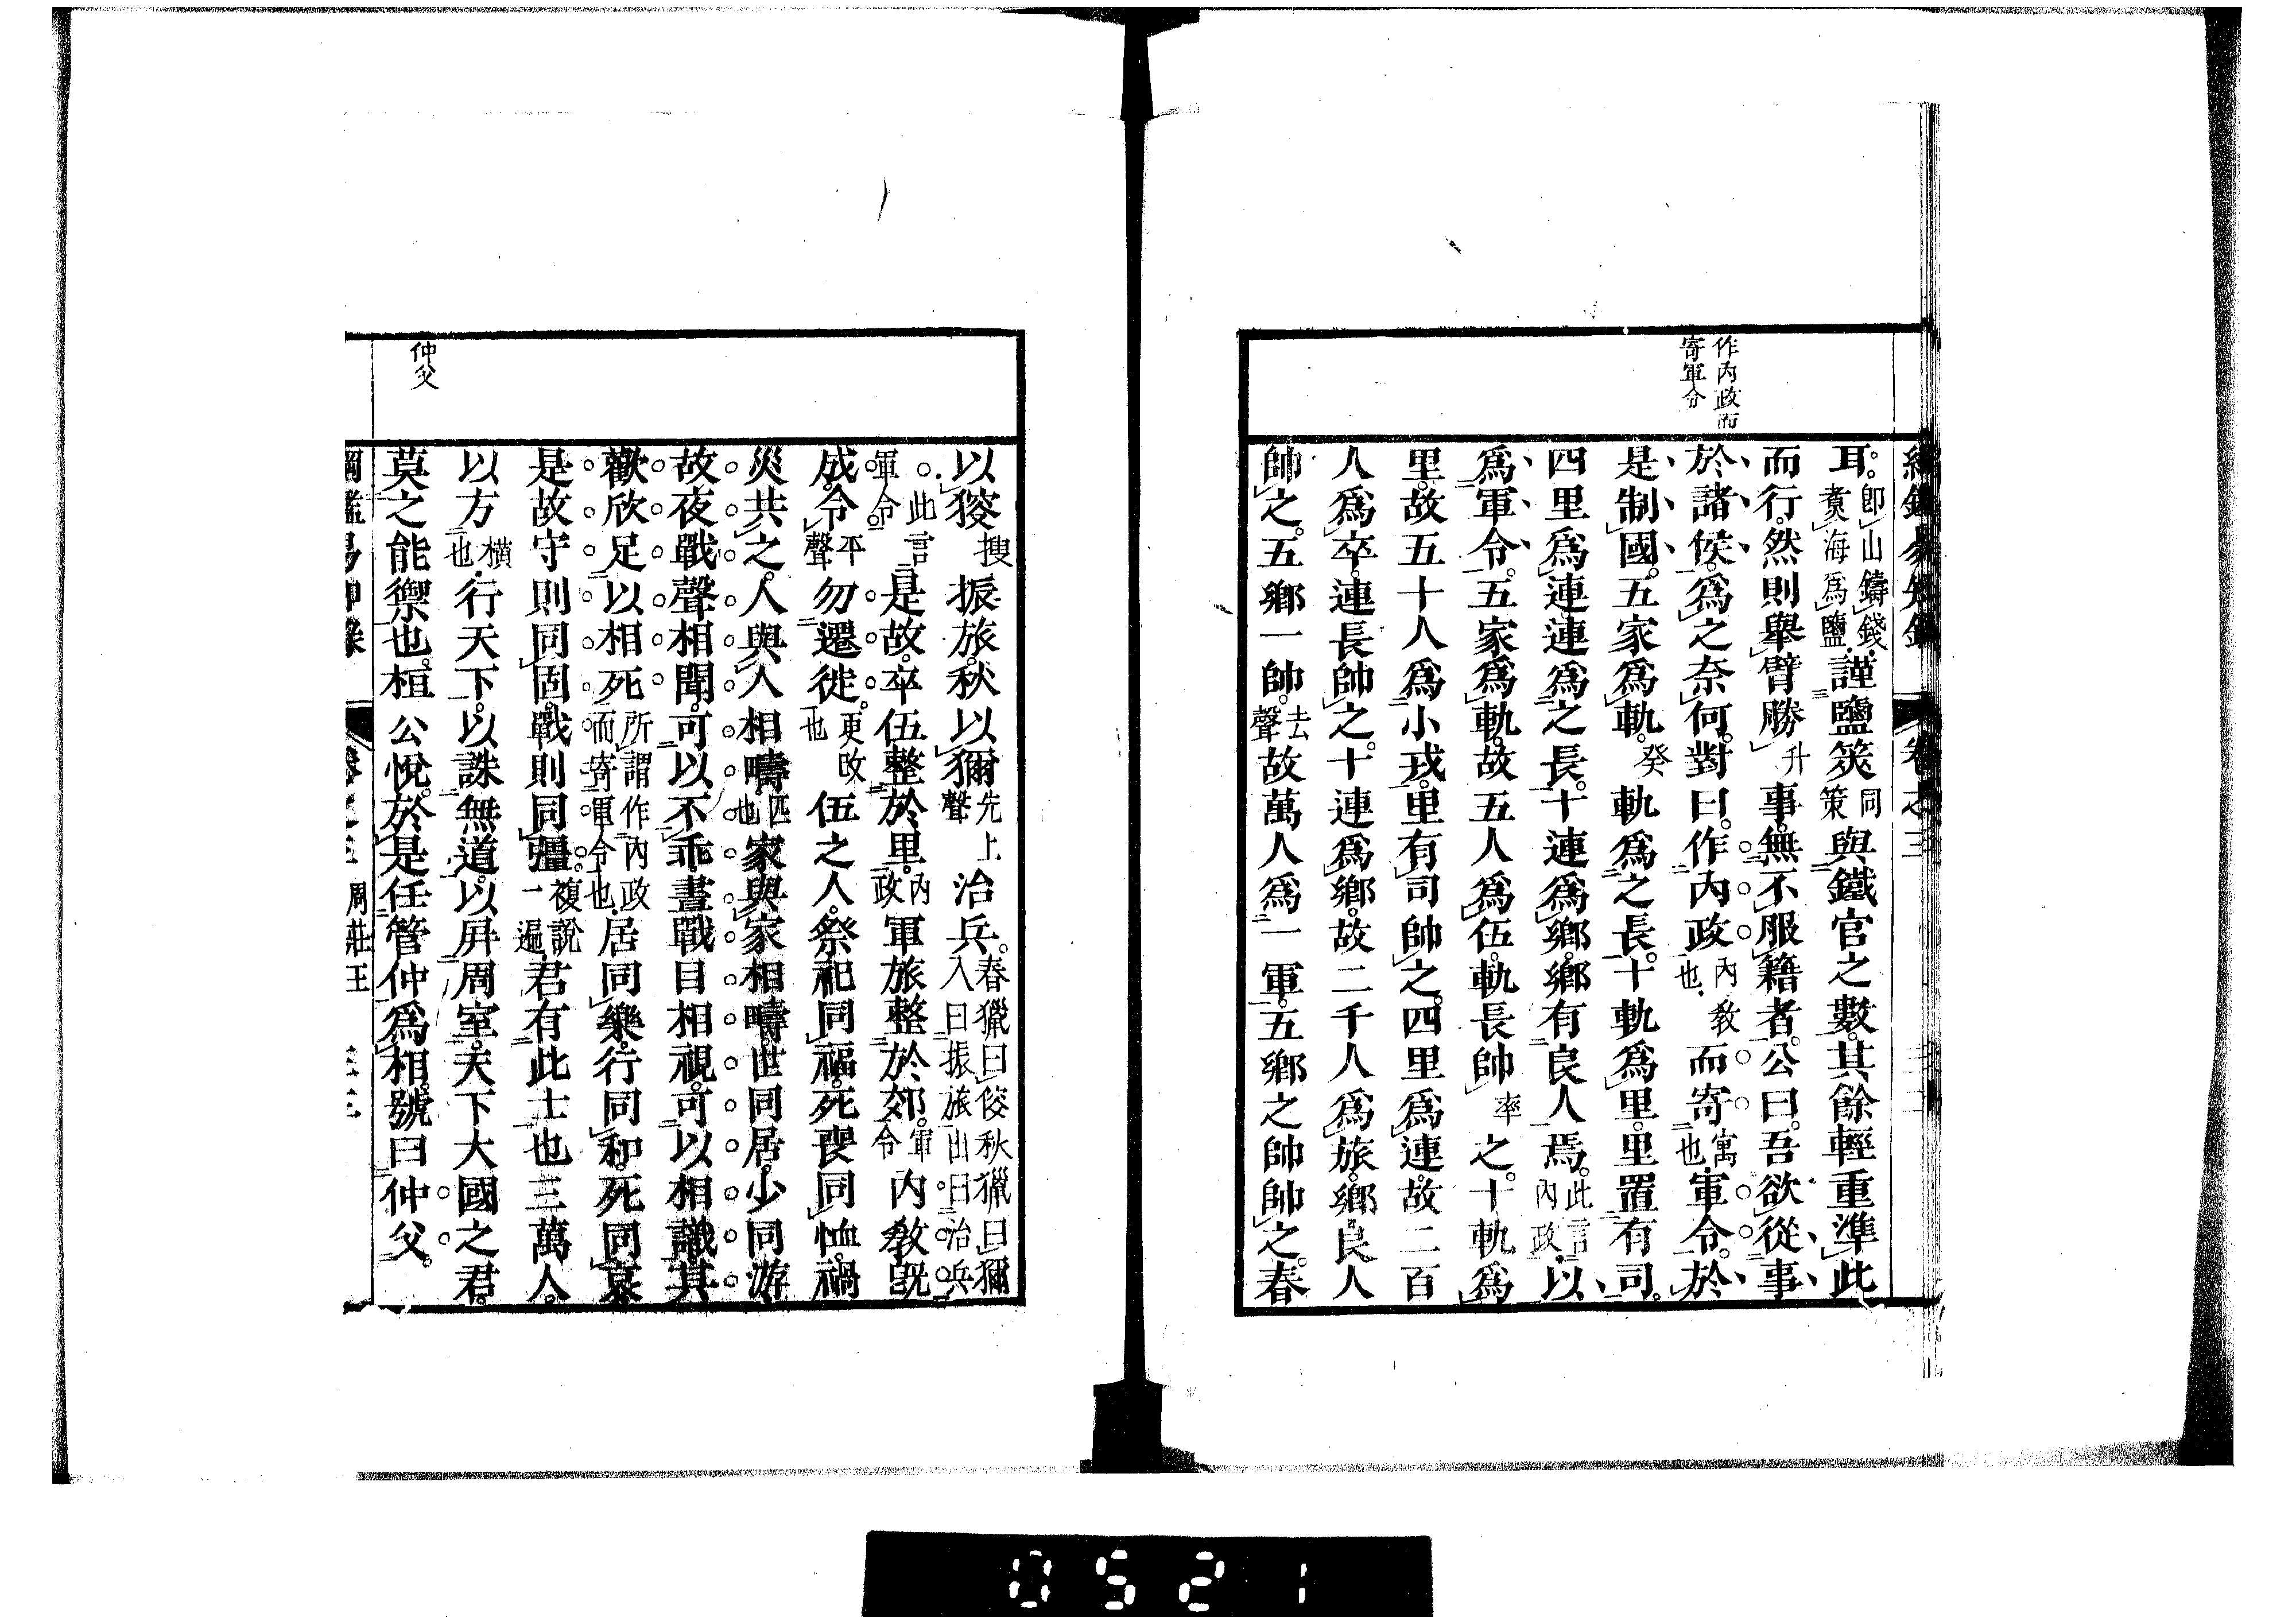 綱鑑易知錄 卷之三
作內政而
寄軍令
耳。卽山鑄錢。煑海爲鹽。謹鹽筴同策與鐵官之數。其餘輕重準此
而行。然則舉臂勝升事。無不服籍者。公曰。吾欲從事
於諸侯。爲之奈何。對曰。作內政內敎也。而寄寓也。軍令。於
是制國。五家爲軌。癸軌爲之長。十軌爲里。里置有司。
四里爲連。連爲之長。十連爲鄉。鄉有良人焉。此言內政。以
爲軍令。五家爲軌。故五人爲伍。軌長帥率之。十軌爲
里。故五十人爲小戎。里有司帥之。四里爲連。故二百
人爲卒。連長帥之。十連爲鄉。故二千人爲旅。鄉良人
帥之。五鄉一帥。去聲故萬人爲一軍。五鄉之帥帥之。春
以獀搜振旅。秋以獮先上聲治兵。春獵曰獀秋獵曰獮入曰振旅出曰治兵
。此言軍令。是故。卒伍整於里。內政軍旅整於郊。軍令內敎旣
成。令平聲勿遷徙。更改也伍之人。祭祀同福。死喪同恤。禍
災共之。人與人相疇。匹也家與家相疇。世同居。少同游。
故夜戰聲相聞。可以不乖。晝戰目相視。可以相識。其
歡欣足以相死。所謂作內政而寄軍令也。居同樂。行同和。死同哀。
是故守則同固。戰則同彊。複說一遍。君有此士也三萬人。
以方橫也。行天下。以誅無道。以屛周室。天下大國之君。
莫之能禦也。桓公悅。於是任管仲爲相。號曰仲父。
仲父
綱鑑易知錄 卷之三 周莊王
0521